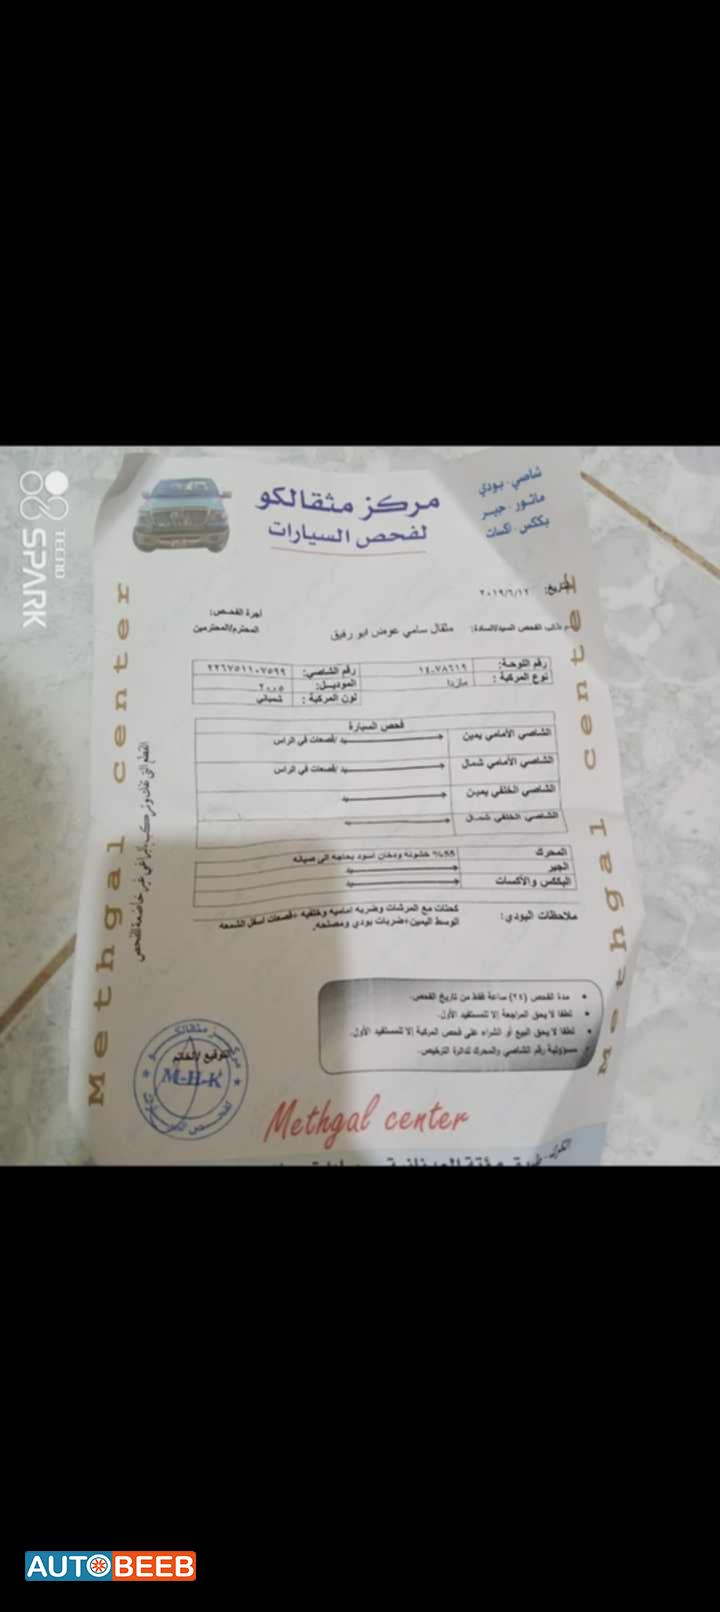 مركز مثقالكو
لفحص السيارات
شاصي - بودي
ماتور - جير
بكس - اكسات
التاريخ: ٢٠١٩/٦/١٢
اجرة الفحص:
طالب الفحص السيد/السادة: مثقال سامي عوض ابو رفيق المحترم/المحترمين
رقم اللوحة: ١٤-٧٨٦١٩ رقم الشاصي:
نوع المركبة : مازدا الموديل: ٢٠٠٥
لون المركبة :
فحص السيارة
الشاصي الأمامي يمين جيد /قصعات في الراس
الشاصي الأمامي شمال جيد /قصعات في الراس
الشاصي الخلفي يمين جيد
الشاصي الخلفي شمال جيد
المحرك 55% خشونه ودخان اسود بحاجه الى صيانه
الجير جيد
البكس والأكسات جيد
ملاحظات البودي: كحتات مع المرشات وضربه اماميه وخلفيه +قصعات اسفل الشمعه
الوسط اليمين+ضربات بودي ومصلحه.
• مدة الفحص (٢٤) ساعة فقط من تاريخ الفحص.
• لطفا لا يحق المراجعة إلا للمستفيد الأول.
• لطفا لا يحق البيع أو الشراء على فحص المركبة إلا للمستفيد الأول.
• مسؤولية رقم الشاصي والمحرك لدائرة الترخيص.
التوقيع /الخاتم
M-H-K
Methgal center
Methgal center
Methgal center
TECNO
SPARK
AUTOBEEB